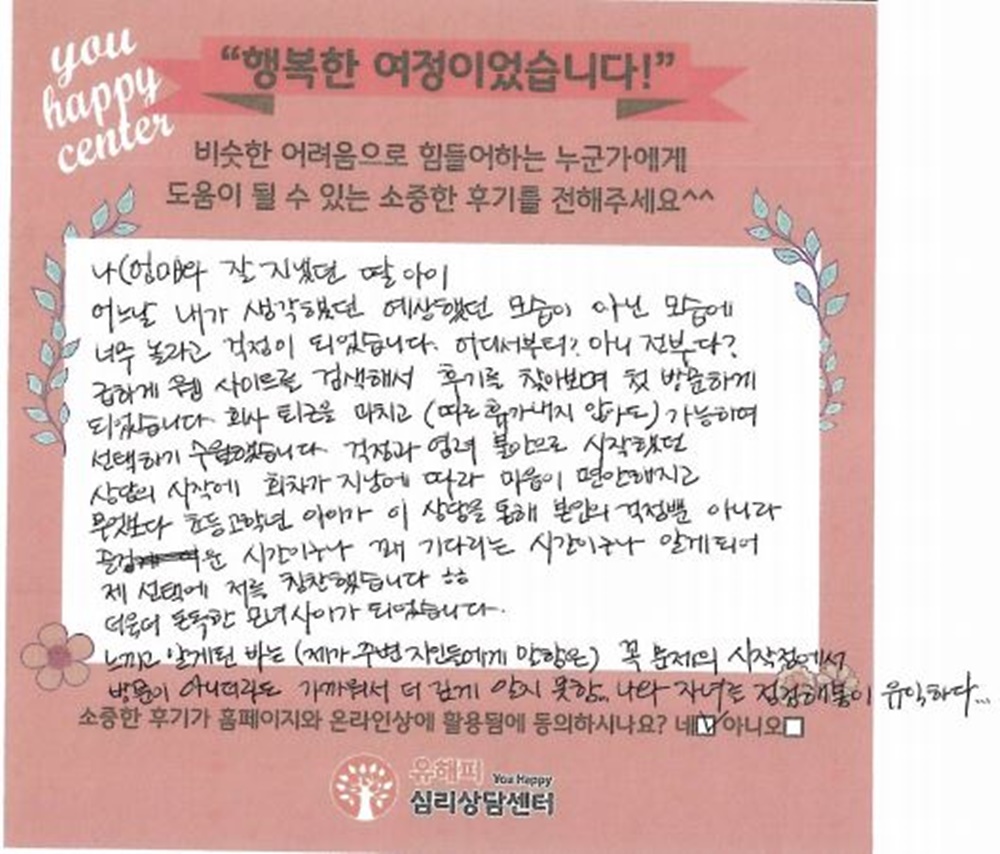 you
happy
center
“행복한 여정이었습니다!”
비슷한 어려움으로 힘들어하는 누군가에게
도움이 될 수 있는 소중한 후기를 전해주세요^^
나(엄마)와 잘 지냈던 딸 아이
어느날 내가 생각했던 예상했던 모습이 아닌 모습에
너무 놀라고 걱정이 되었습니다. 어디서부터? 아니 전부 다?
급하게 웹 사이트를 검색해서 후기를 찾아보며 첫 방문하게
되었습니다. 회사 퇴근을 마치고 (따로 휴가내지 않아도) 가능하며
선택하기 수월했습니다. 걱정과 염려 불안으로 시작했던
상담의 시작에 회차가 지남에 따라 마음이 편안해지고
무엇보다 초등고학년 아이가 이 상담을 통해 본인의 걱정뿐 아니라
즐거운 시간이구나 꽤 기다리는 시간이구나 알게되어
제 선택에 저를 칭찬했습니다 ㅎㅎ
더욱더 돈독한 모녀사이가 되었습니다.
느끼고 알게된 바는 (제가 주변 지인들에게 말함은) 꼭 문제의 시작점에서
방문이 아니더라도 가까워서 더 깊게 알지 못함.. 나와 자녀는 점검해봄이 유익하다...
소중한 후기가 홈페이지와 온라인상에 활용됨에 동의하시나요? 네☑ 아니오☐
유해피 You Happy
심리상담센터